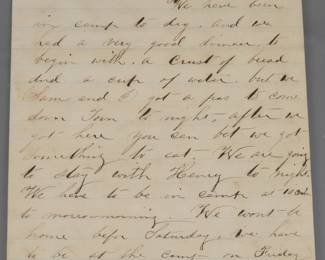 We have been
in camp to day. and we
had a very good dinner. to
begin with. a crust of bread
And a cup of water. but we
Sam and I got a pas to come
down Town to night, after we
got here you can bet we got
something to eat. We are going
to stay with Henry to night
We have to be in camp at
to morrow morning. We wont be
home befor Saturday. we have
to be at the camp on Friday